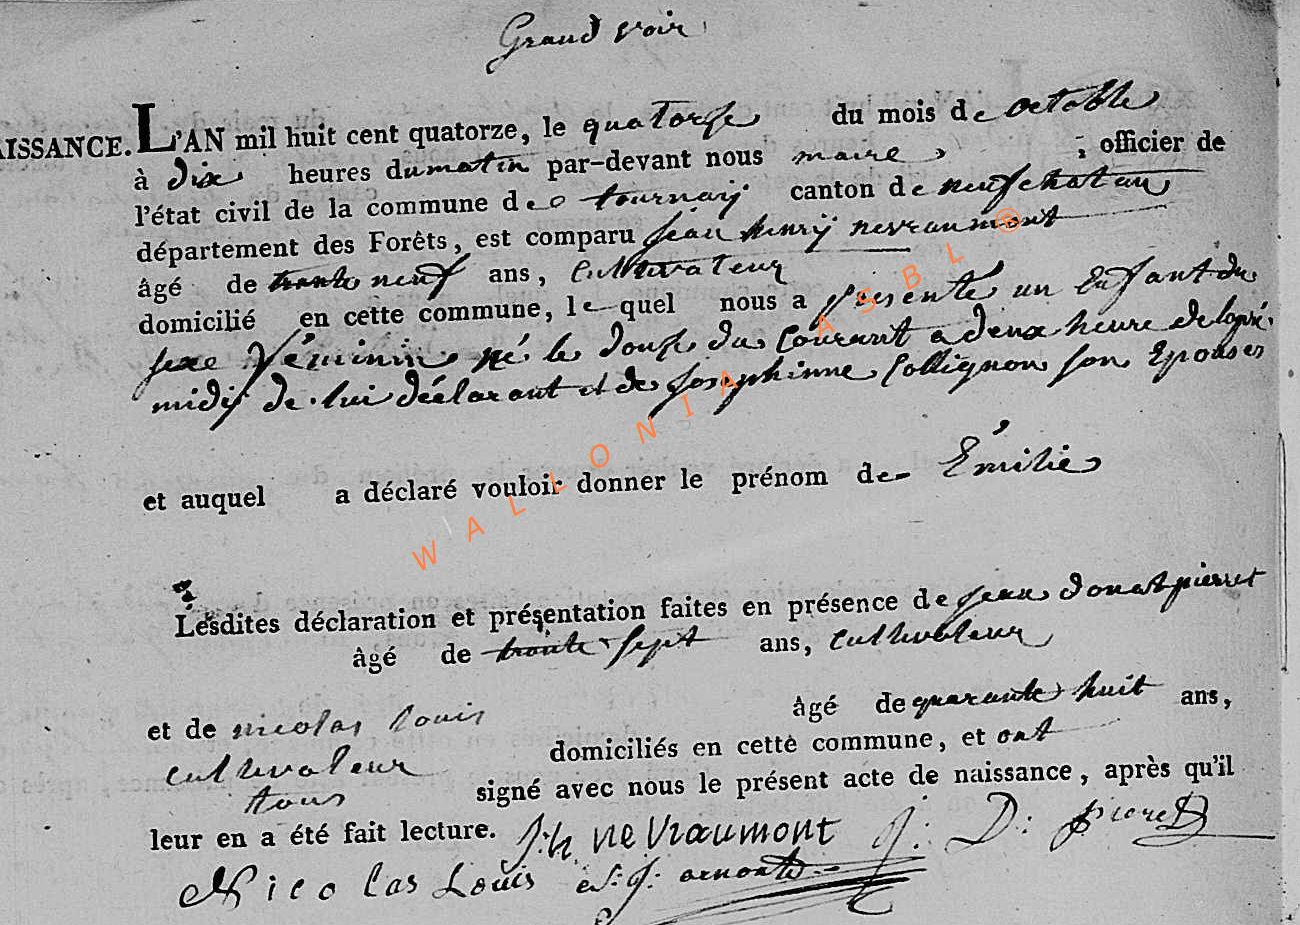 Grand voir
AISSANCE. L'AN mil huit cent quatorze, le quatorze du mois de octobre
à dix heures du matin par-devant nous maire, officier de
l'état civil de la commune de tournay canton de neufchatau
département des Forêts, est comparu jean henry nevraumont
âgé de trente neuf ans, cultivateur
domicilié en cette commune, lequel nous a presente un Enfant du
sexe féminin né le douse du Courant a deux heure de lapré
midy de lui déclarant et de josephinne Collignon son Epouse
et auquel a déclaré vouloir donner le prénom de Émilie
Lesdites déclaration et présentation faites en présence de jean donat pierret
âgé de trente sept ans, cultivateur
et de nicolas louis âgé de quarante huit ans,
cultivateur domiciliés en cette commune, et ont
tous signé avec nous le présent acte de naissance, après qu'il
leur en a été fait lecture. J: h, neVraumont J: D: pieret
Nicolas Louis
WALLONIA ASBL ®